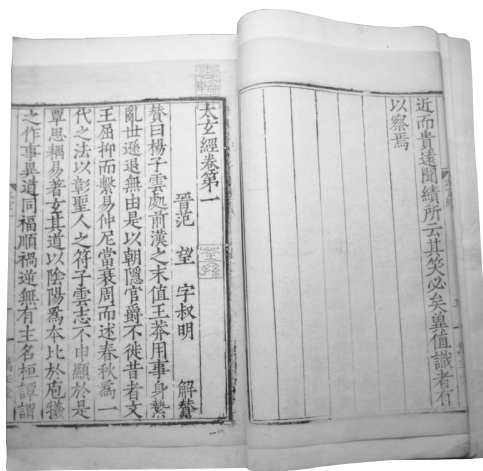 近而貴遠聞績所云其笑必矣冀值識者有
以察焉
太玄經卷第一
晉范 望 字叔明 解贊
贊曰楊子雲處前漢之末值王莽用事身縶
亂世遜退無由是以朝隱官爵不徙昔者文
王屈抑而繫易仲尼當衰周而述春秋爲一
代之法以彰聖人之符子雲志不申顯於是
覃思耦易著玄其道以陰陽爲本比於庖犧
之作事異道同福順禍逆無有主名桓譚謂